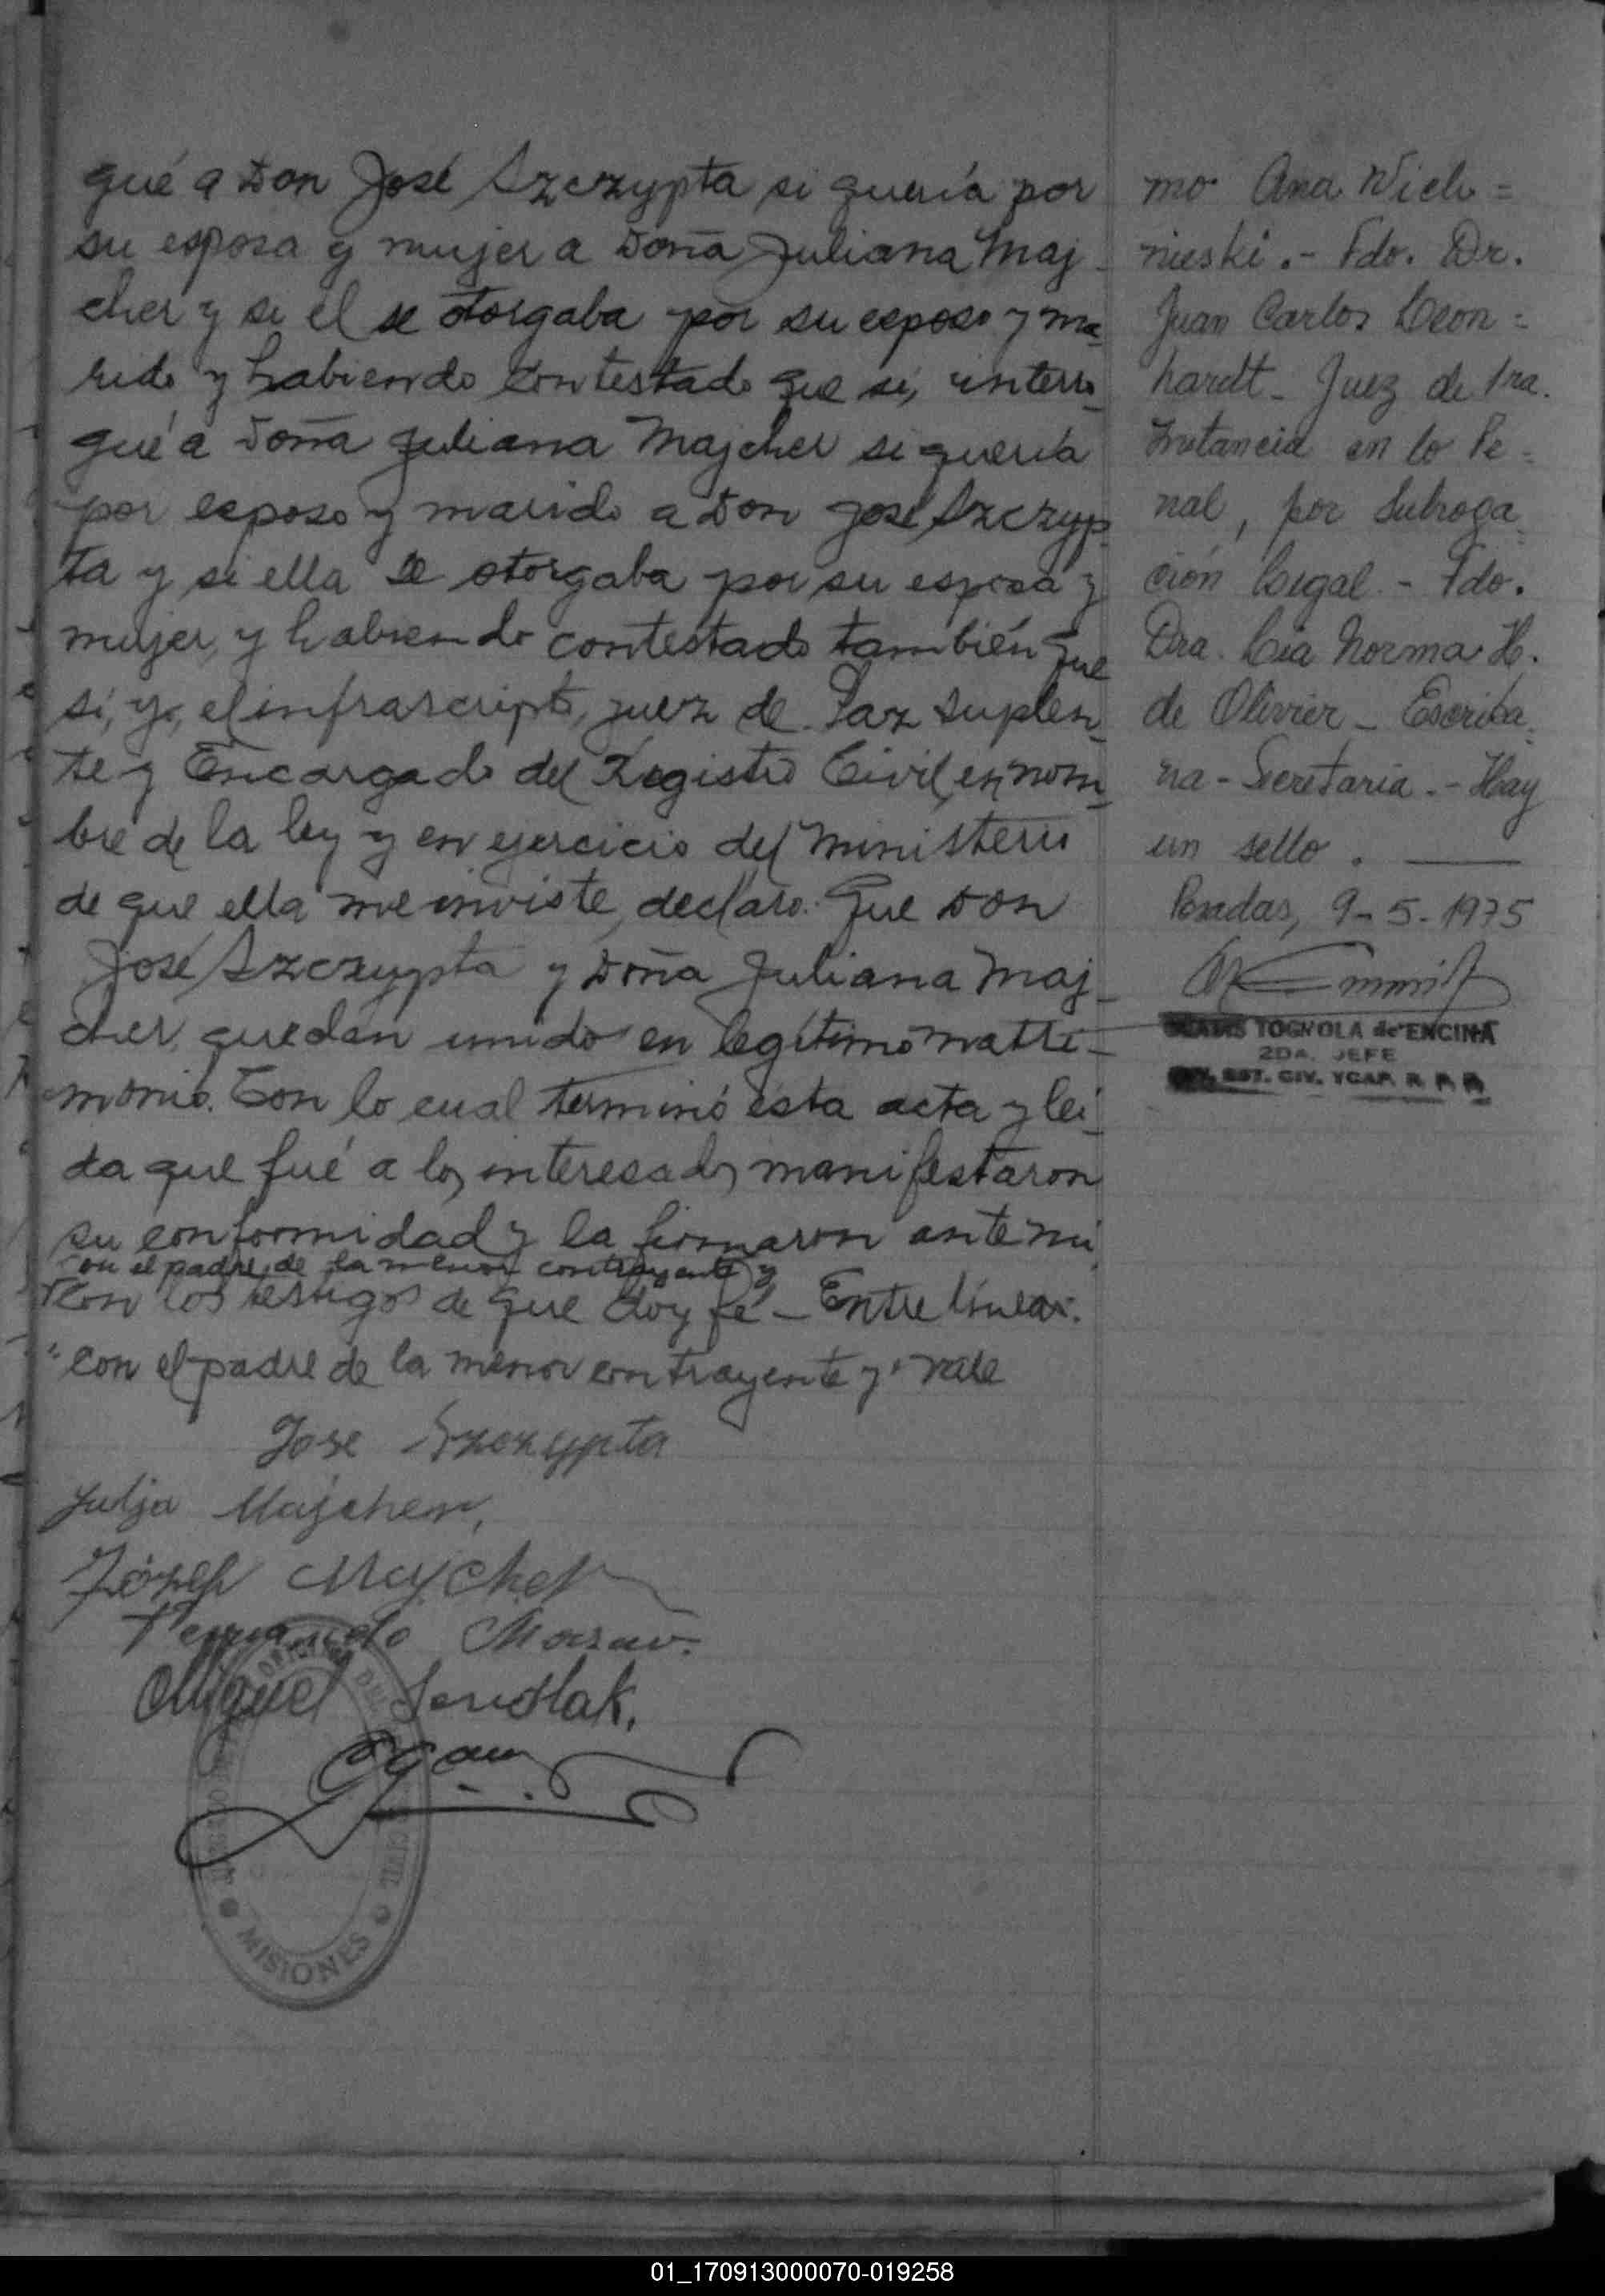 gué a Don José Szczypta si quería por
su esposa y mujer a Doña Juliana Maj-
cher y si el se otorgaba por su esposo y ma-
rido y habiendo contestado que si, interro-
gué a Doña Juliana Majcher si quería
por esposo y marido a Don José Szczyp-
ta y si ella se otorgaba por su esposa y
mujer, y habiendo contestado también que
si, yo, el infrascripto, juez de Paz Suplen-
te y Encargado del Registro Civil, en nom-
bre de la ley y en ejercicio del Ministerio
de que ella me inviste, declaro: Que Don
José Szczypta y Doña Juliana Maj-
cher, quedan unido en legítimo matri-
monio. Con lo cual terminó esta acta y leí-
da que fué a los interesados manifestaron
su conformidad y la firmaron ante mi,
con el padre de la menor contrayente y
con los testigos de que doy fé - Entre líneas:
"con el padre de la menor contrayente y" vale
Jose Szczypta
Julja Majcher,
Józef Majcher
Fernando Mazur.
Miguel Serdlak.
OFICINA DEL
CIVIL
MISIONES
mo Ana Wich=
nieski.- Fdo. Dr.
Juan Carlos Leon=
hardt - Juez de 1ra.
Instancia en lo Pe=
nal, por Subroga-
ción Legal. - Fdo.
Dra. Lia Norma H.
de Olivier - Escriba-
na - Secretaria. - Hay
un sello.
Posadas, 9-5-1975
TOGNOLA de ENCINA
2DA. JEFE
EST. CIV. YCAP. R. P. P.
01_170913000070-019258